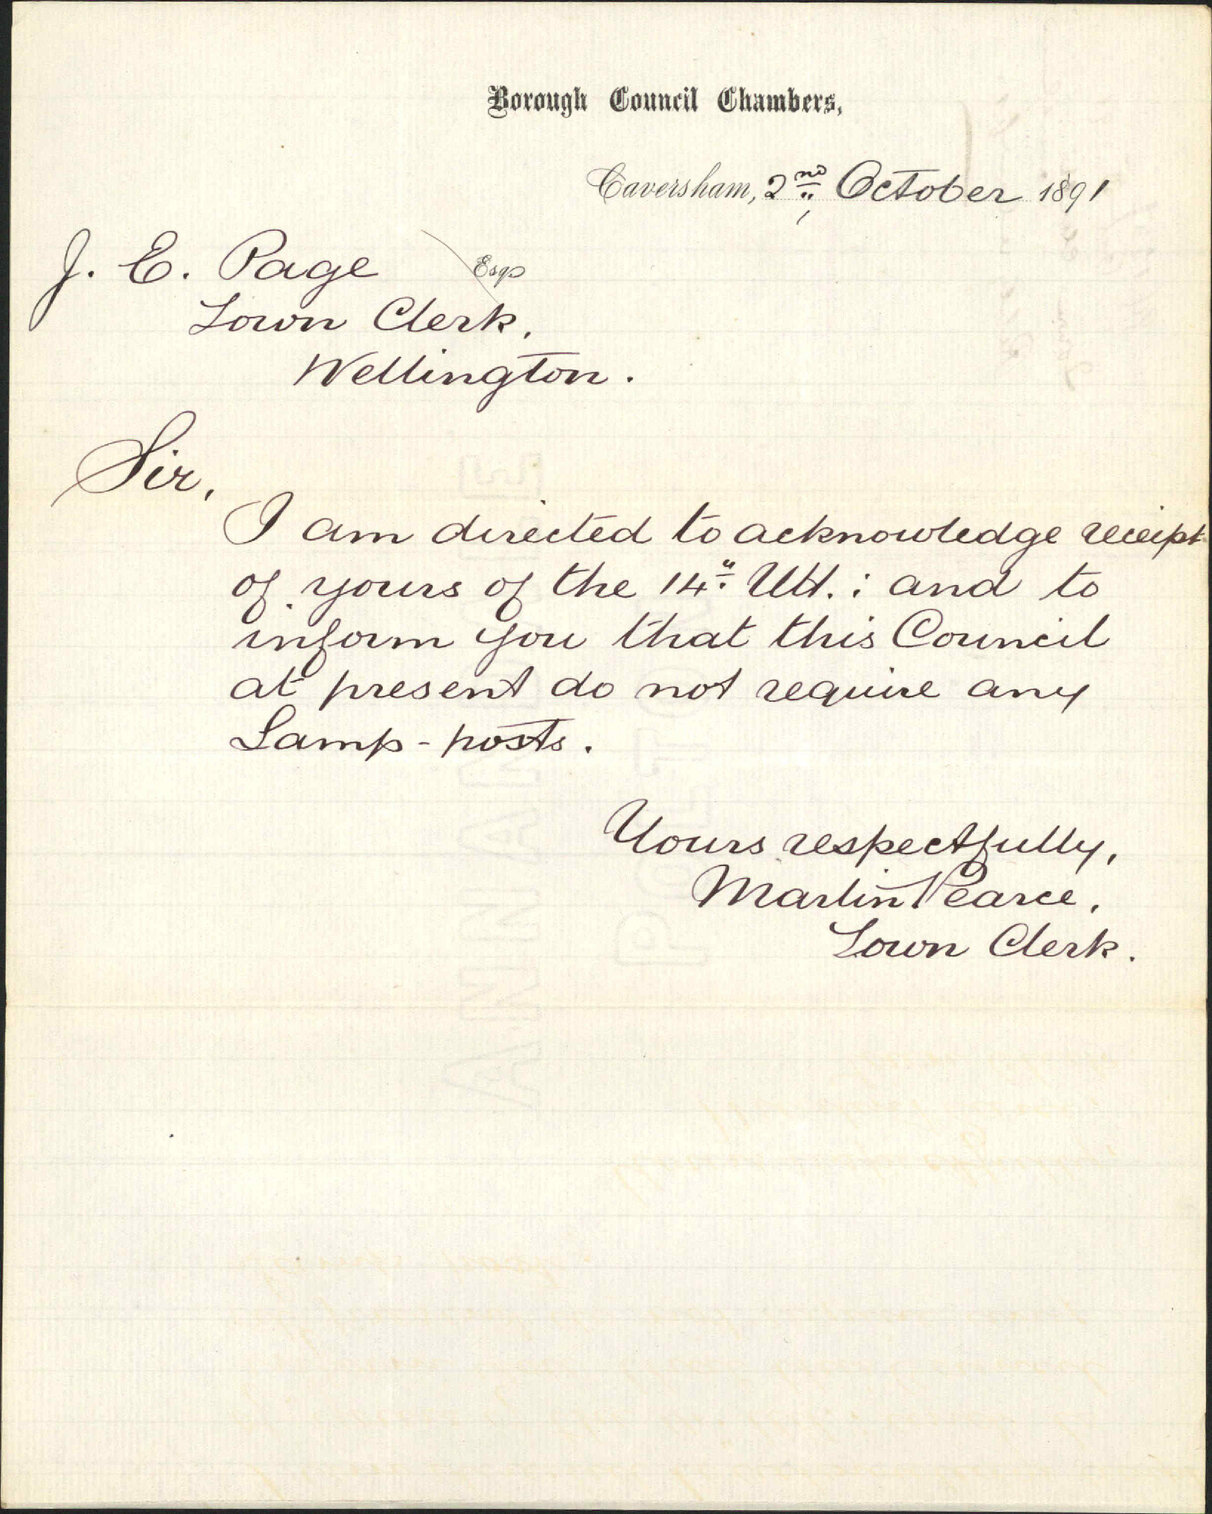 Borough Council Chambers,
Caversham, 2nd, October 1891
J. E. Page Esqr
Town Clerk.
Wellington.
Sir,
I am directed to acknowledge receipt
of yours of the 14" Ult. : and to
inform you that this Council
at present do not require any
Lamp-posts.
Yours respectfully,
Martin Pearce,
Town Clerk.